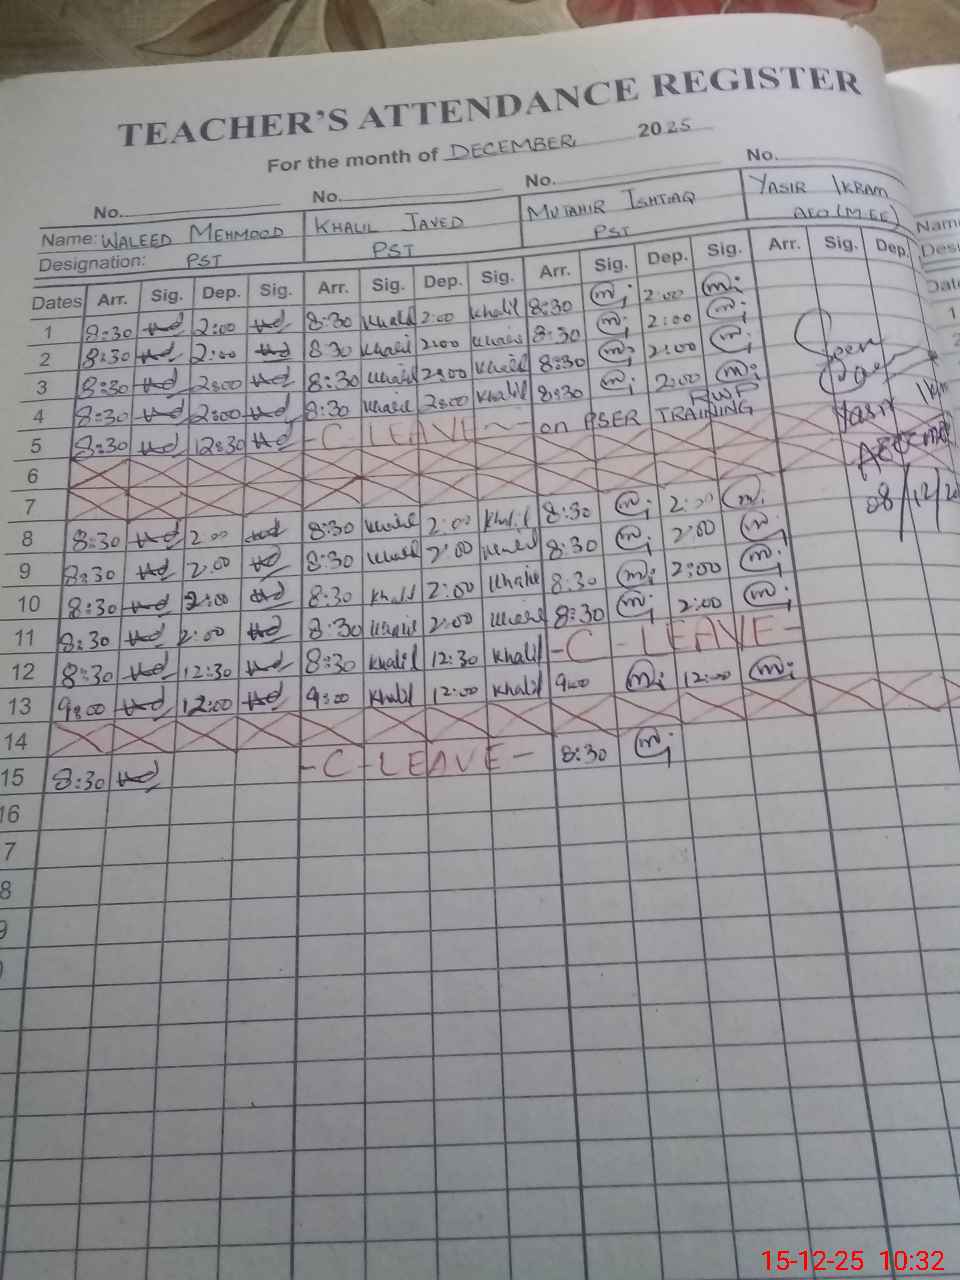 TEACHER'S ATTENDANCE REGISTER
For the month of DECEMBER, 2025
No. No. No. No.
Name: WALEED MEHMOOD KHALIL JAVED MUTAHIR ISHTIAQ YASIR IKRAM Name
Designation: PST PST PST AEO (M-EE)
Dates Arr. Sig. Dep. Sig. Arr. Sig. Dep. Sig. Arr. Sig. Dep. Sig. Arr. Sig. Dep.
1 8:30 2:00 8:30 Khalil 2:00 Khalil 8:30 2:00
2 8:30 2:00 8:30 Khalil 2:00 Khalil 8:30 2:00 Seen
3 8:30 2:00 8:30 Khalil 2:00 Khalil 8:30 2:00
4 8:30 2:00 8:30 Khalil 2:00 Khalil 8:30 2:00
5 8:30 12:30 - C LEAVE - on PSER TRAINING RWP Yasir
6
7 08/12/2
8 8:30 2:00 8:30 Khalil 2:00 Khalil 8:30 2:00
9 8:30 2:00 8:30 Khalil 2:00 Khalil 8:30 2:00
10 8:30 2:00 8:30 Khalil 2:00 Khalil 8:30 2:00
11 8:30 2:00 8:30 Khalil 2:00 Khalil 8:30 2:00
12 8:30 12:30 8:30 Khalil 12:30 Khalil - C - LEAVE -
13 9:00 12:00 9:00 Khalil 12:00 Khalil 9:00 12:00
14
15 8:30 - C - LEAVE - 8:30
16
7
8
15-12-25 10:32